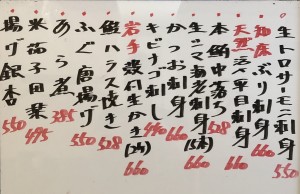 生トロサーモン刺身 550
知床 ぶり刺身 660
天然 真平目刺身 660
本鮪中落ち 528
生ウニ海老刺身(5本) 660
かつお刺身 660
キビナゴ刺し 440
岩手 殻付生かき(2ケ) 660
鮭ハラス焼き 528
ふぐ唐揚げ 550
あら煮 385
米茄子田楽 495
揚げ銀杏 550